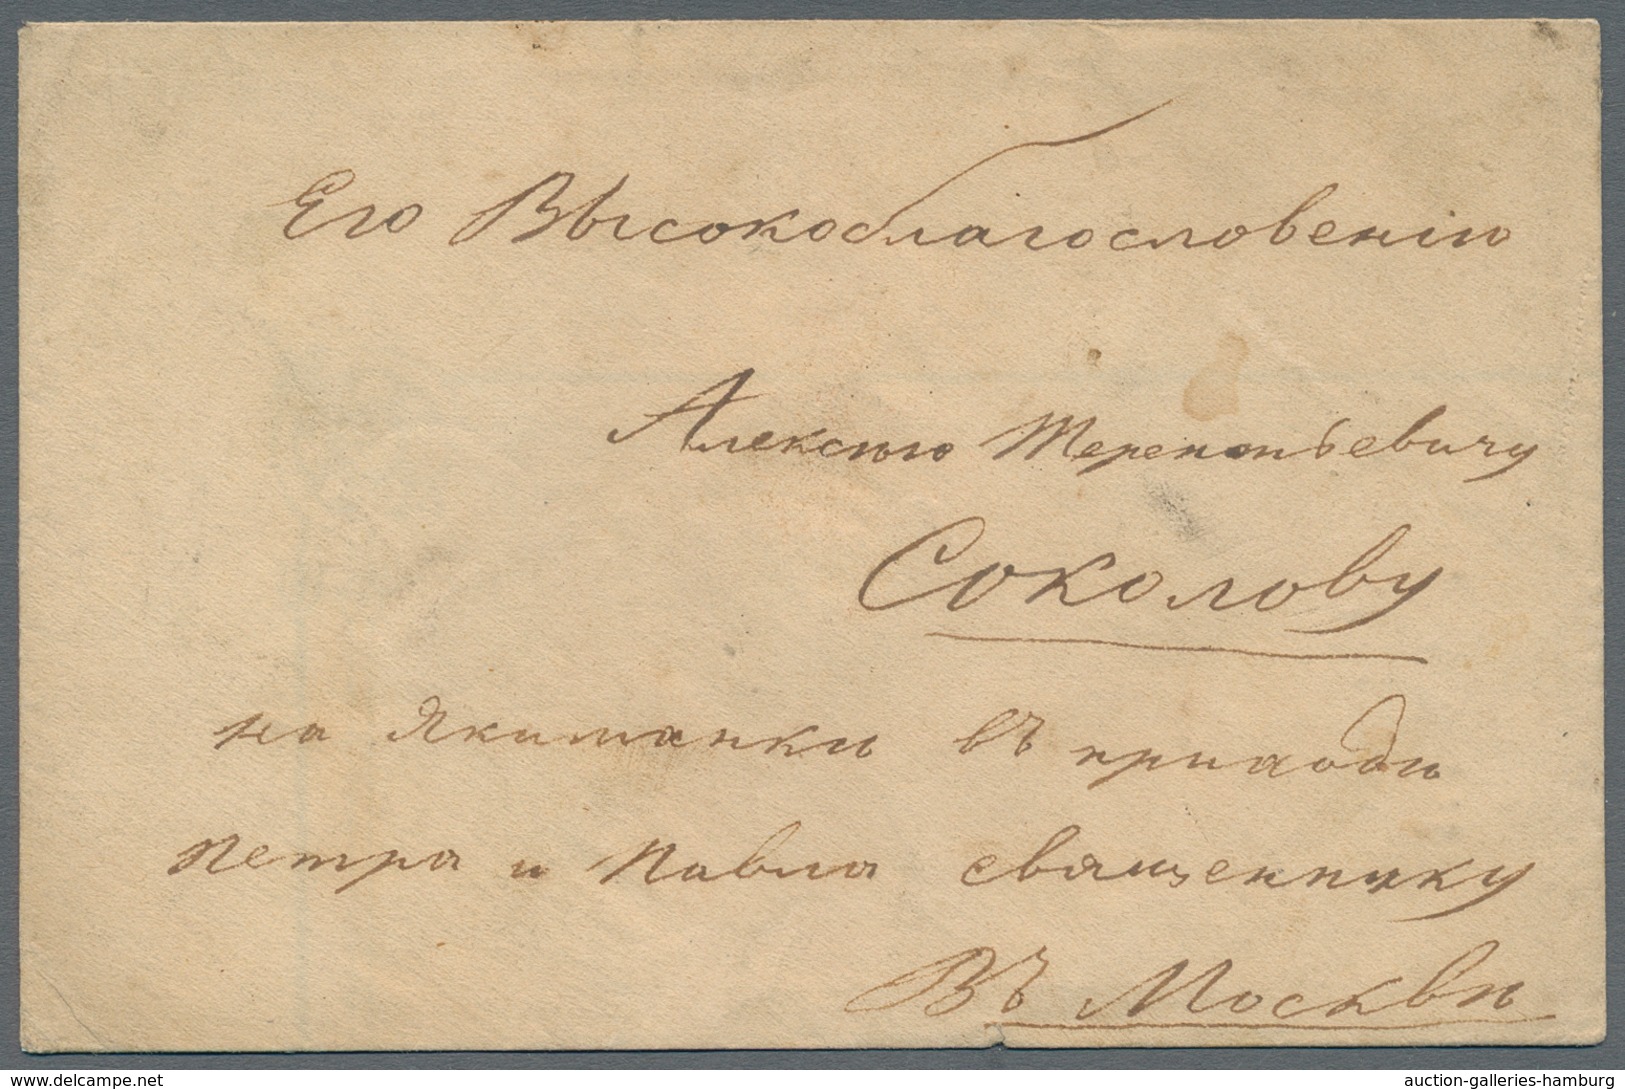 Его Высокоблагословенію
Алексѣю Терентьевичу
Соколову
на Якиманки въ приходѣ
Петра и Павла священнику
Въ Москвѣ
www.delcampe.net
auction-galleries-hamburg